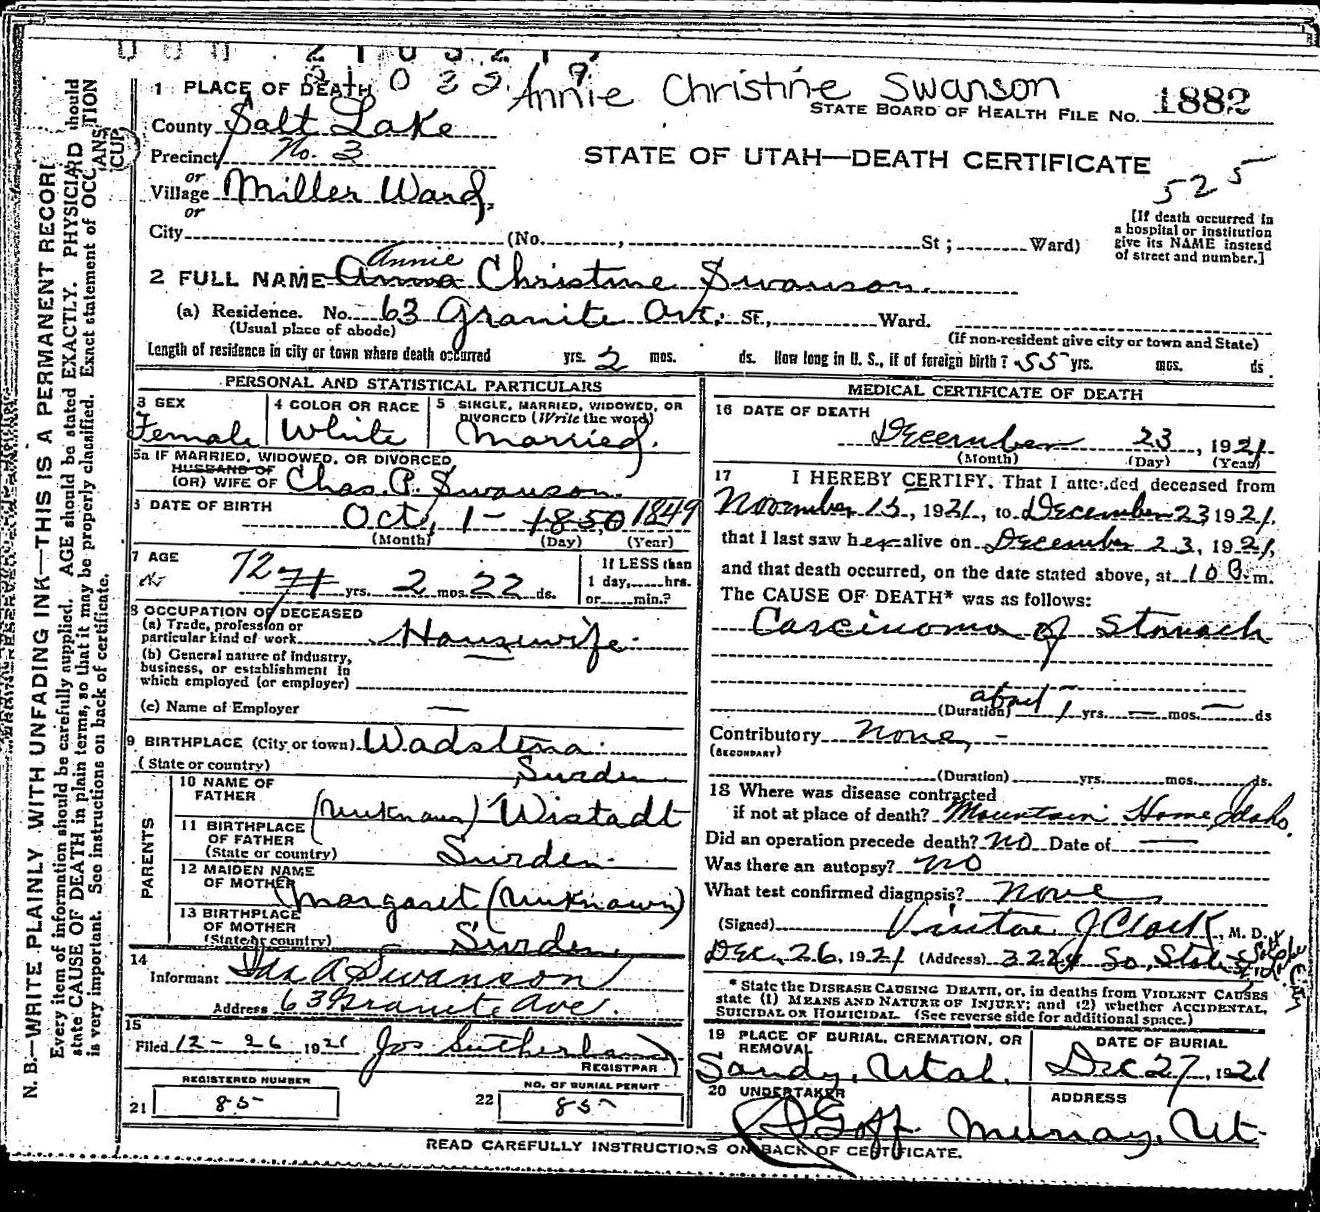 21032
Annie Christine Swanson
1 PLACE OF DEATH
STATE BOARD OF HEALTH FILE NO. 1882
County Salt Lake
Precinct No. 3
STATE OF UTAH—DEATH CERTIFICATE
525
or
Village Miller Ward.
or
City (No. , St ; Ward)
[If death occurred in
a hospital or institution
give its NAME instead
of street and number.]
Annie
2 FULL NAME Anna Christine Swanson.
(a) Residence. No. 63 Granite Ave. ST., Ward.
(Usual place of abode) (If non-resident give city or town and State)
Length of residence in city or town where death occurred yrs. 2 mos. ds. How long in U. S., if of foreign birth? 55 yrs. mos. ds
PERSONAL AND STATISTICAL PARTICULARS
3 SEX
Female
4 COLOR OR RACE
White
5 SINGLE, MARRIED, WIDOWED, OR
DIVORCED (Write the word)
Married.
5a IF MARRIED, WIDOWED, OR DIVORCED
HUSBAND OF
(OR) WIFE OF Chas. P. Swanson.
6 DATE OF BIRTH
Oct, 1 - 1850 1849
(Month) (Day) (Year)
7 AGE
72 71 yrs. 2 mos. 22 ds.
If LESS than
1 day, hrs.
or min.?
8 OCCUPATION OF DECEASED
(a) Trade, profession or
particular kind of work Housewife.
(b) General nature of industry,
business, or establishment in
which employed (or employer)
(c) Name of Employer —
9 BIRTHPLACE (City or town) Wadstena.
(State or country) Sweden
PARENTS
10 NAME OF
FATHER (Unknown) Wistadt
11 BIRTHPLACE
OF FATHER
(State or country) Sweden.
12 MAIDEN NAME
OF MOTHER Margaret (Unknown)
13 BIRTHPLACE
OF MOTHER
(State or country) Sweden
14
Informant Ida A Swanson
Address 63 Granite Ave.
15
Filed 12-26, 1921 Jos Sutherland
REGISTRAR
REGISTERED NUMBER
21 85
NO. OF BURIAL PERMIT
22 85
MEDICAL CERTIFICATE OF DEATH
16 DATE OF DEATH
December 23, 1921
(Month) (Day) (Year)
17 I HEREBY CERTIFY, That I attended deceased from
November 15, 1921, to December 23 1921.
that I last saw her alive on December 23, 1921,
and that death occurred, on the date stated above, at 10 m.
The CAUSE OF DEATH* was as follows:
Carcinoma of Stomach
(Duration) about 1 yrs. — mos. — ds
Contributory None, -
(SECONDARY)
(Duration) yrs. mos. ds.
18 Where was disease contracted
if not at place of death? Mountain Home, Idaho.
Did an operation precede death? NO Date of —
Was there an autopsy? NO
What test confirmed diagnosis? None
(Signed) J Clark, M. D.
Dec. 26, 1921 (Address) So, State Salt Lake City
* State the DISEASE CAUSING DEATH, or, in deaths from VIOLENT CAUSES
state (1) MEANS AND NATURE OF INJURY; and (2) whether ACCIDENTAL,
SUICIDAL OR HOMICIDAL. (See reverse side for additional space.)
19 PLACE OF BURIAL, CREMATION, OR
REMOVAL
Sandy, Utah.
DATE OF BURIAL
Dec 27, 1921
20 UNDERTAKER
Goff
ADDRESS
Murray, Ut.
READ CAREFULLY INSTRUCTIONS ON BACK OF CERTIFICATE.
N. B.—WRITE PLAINLY WITH UNFADING INK—THIS IS A PERMANENT RECORD
Every item of information should be carefully supplied. AGE should be stated EXACTLY. PHYSICIANS should
state CAUSE OF DEATH in plain terms, so that it may be properly classified. Exact statement of OCCUPATION
is very important. See instructions on back of certificate.